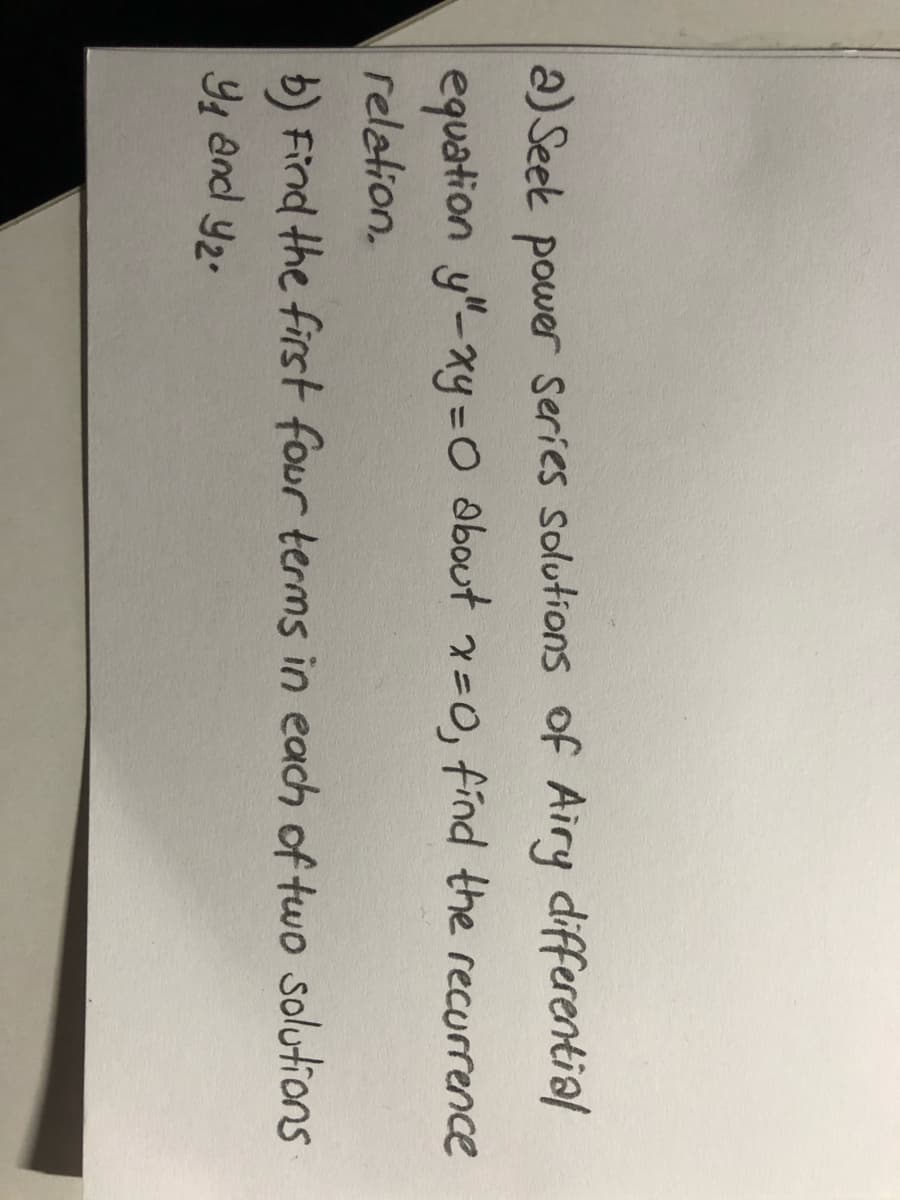 a) Seek power series solutions of Airy differential
equation y"-xy=0 about x=0, find the recurrence
relation.
b) Find the first four terms in each of two solutions
y₁ and y₂.